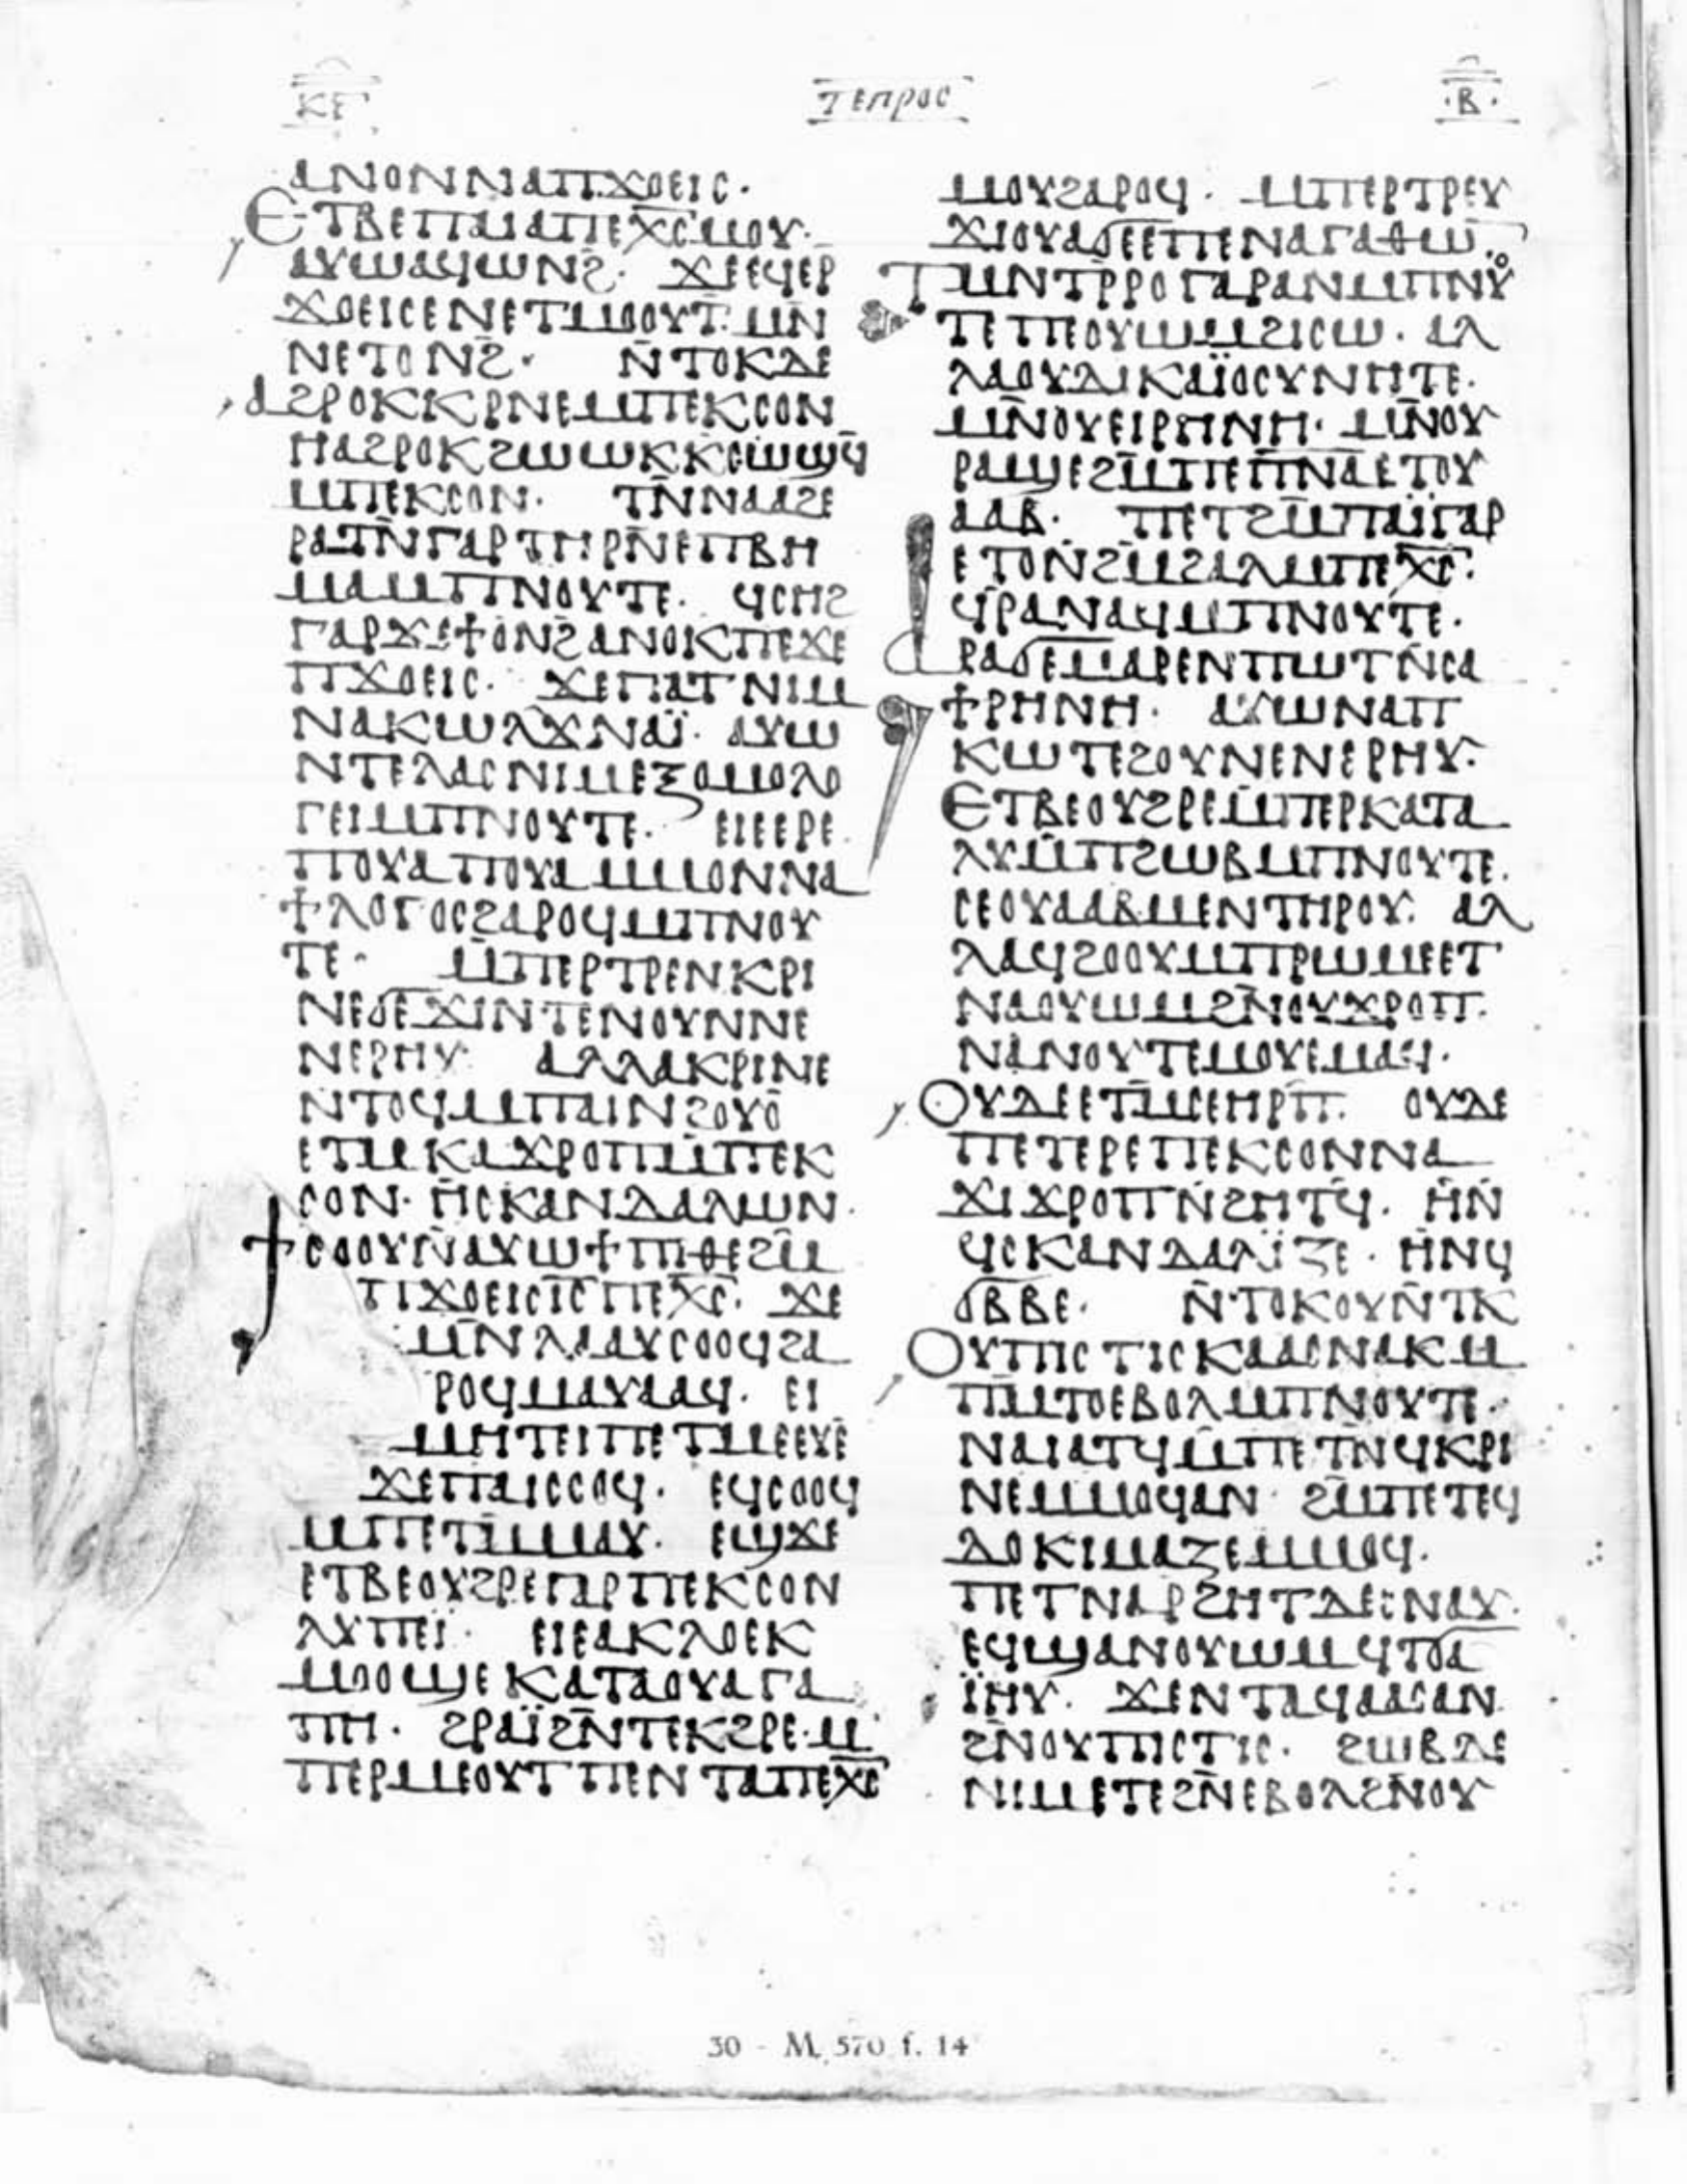 ⲔⲊ
ⲦⲈⲠⲢⲞⲤ
·Ⲃ·
ⲀⲚⲞⲚⲚⲀⲠϪⲞⲈⲒⲤ·
ⲈⲦⲂⲈⲠⲀⲒⲀⲠⲈⲬ̅Ⲥ̅ⲘⲞⲨ·
ⲀⲨⲰⲀϤⲰⲚϨ· ϪⲈⲈϤⲈⲢ
ϪⲞⲈⲒⲤⲈⲚⲈⲦⲘⲞⲞⲨⲦ· ⲘⲚ̄
ⲚⲈⲦⲞⲚϨ· Ⲛ̄ⲦⲞⲔⲆⲈ
ⲀϨⲢⲞⲔⲔⲢⲚⲈⲘⲠⲈⲔⲤⲞⲚ
ⲎⲀϨⲢⲞⲔϨⲰⲰⲔⲔⲤⲰϢϤ̄
ⲘⲠⲈⲔⲤⲞⲚ· ⲦⲚ̄ⲚⲀⲀϨⲈ
ⲢⲀⲦⲚ̄ⲄⲀⲢⲦⲎⲢⲚ̄ⲈⲠⲂⲎ
ⲘⲀⲘⲠⲚⲞⲨⲦⲈ· ϤⲤⲎϨ
ⲄⲀⲢϪⲈϮⲞⲚϨⲀⲚⲞⲔⲠⲈϪⲈ
ⲠϪⲞⲈⲒⲤ· ϪⲈⲠⲀⲦⲚⲒⲘ
ⲚⲀⲔⲰⲖϪⲚⲀⲒ̈· ⲀⲨⲰ
ⲚⲦⲈⲖⲀⲤⲚⲒⲘⲈⲜⲞⲘⲞⲖⲞ
ⲄⲈⲒⲘⲠⲚⲞⲨⲦⲈ· ⲈⲒⲈⲈⲢⲈ
ⲠⲞⲨⲀⲠⲞⲨⲀⲘⲘⲞⲚⲚⲀ
ϮⲖⲞⲄⲞⲤϨⲀⲢⲞϤⲘⲠⲚⲞⲨ
ⲦⲈ· Ⲙ̄ⲠⲈⲢⲦⲢⲈⲚⲔⲢⲒ
ⲚⲈϬⲈϪⲒⲚⲦⲈⲚⲞⲨⲚⲚⲈ
ⲚⲈⲢⲎⲨ· ⲀⲖⲖⲀⲔⲢⲒⲚⲈ
ⲚⲦⲞϤⲘⲠⲀⲒⲚϨⲞⲨⲞ̄
ⲈⲦⲘⲔⲀϪⲢⲟⲠⲘ̄ⲠⲈⲔ
ⲤⲞⲚ· ⲎⲤⲔⲀⲚⲆⲀⲖⲰⲚ·
ϮⲤⲞⲞⲨⲚ̄ⲀⲨⲰϮⲠⲒⲐⲈϨⲘ̄
ⲠϪⲞⲈⲒⲤⲒ̅Ⲥ̅ⲠⲈⲬ̅Ⲥ̅· ϪⲈ
ⲘⲚ̄ⲖⲀⲀⲨⲤⲞⲞϤϨⲀ
ⲢⲞϤⲘⲀⲨⲀⲀϤ· ⲈⲒ
ⲘⲎⲦⲈⲒⲠⲈⲦⲘⲈⲈⲨⲈ̄
ϪⲈⲠⲀⲒⲤⲤⲞϤ· ⲈϤⲤⲞⲞϤ
ⲘⲠⲈⲦⲘ̄ⲘⲀⲨ· ⲈϢϪⲈ
ⲈⲦⲂⲈⲞⲨϨⲢⲈⲄⲀⲢⲠⲈⲔⲤⲞⲚ
ⲖⲨⲠⲈⲒ̈· ⲈⲒⲈⲀⲔⲖⲞⲈⲔ
ⲘⲞⲞϢⲈⲔⲀⲦⲀⲞⲨⲀⲄⲀ
ⲠⲎ· ϨⲢⲀⲒ̈ϨⲚ̄ⲦⲈⲔϨⲢⲈ·Ⲙ
ⲠⲈⲢⲘⲈⲞⲨⲦⲠⲈⲚⲦⲀⲠⲈⲬ̅Ⲥ̅
ⲘⲞⲨϨⲀⲢⲞϤ· ⲘⲠⲈⲢⲦⲢⲈⲨ
ϪⲒⲞⲨⲀϬⲈⲈⲠⲈⲚⲀⲄⲀⲐⲰ·
ⲦⲘⲚⲦⲢ̄ⲢⲞⲄⲀⲢⲀⲚⲘⲠⲚⲞⲨ
ⲦⲈⲠⲈⲞⲨⲰⲘϨⲒⲤⲰ· ⲀⲖ
ⲖⲀⲞⲨⲆⲒⲔⲀⲒ̈ⲞⲤⲨⲚⲎⲦⲈ·
ⲘⲚ̄ⲞⲨⲈⲒⲢⲎⲚⲎ· ⲘⲚ̄ⲞⲨ
ⲢⲀϢⲈϨⲘ̄ⲠⲈⲠ̅Ⲛ̅Ⲁ̅ⲈⲦⲞⲨ
ⲀⲀⲂ· ⲠⲈⲦϨⲘ̄ⲠⲀⲒ̈ⲄⲀⲢ
ⲈⲦⲞⲚ̄ϨⲘϨⲀⲖⲘⲠⲈⲬ̅Ⲥ̅·
ϤⲢ̄ⲀⲚⲀϤⲘⲠⲚⲞⲨⲦⲈ·
ⲀⲢⲀϬⲈⲘⲀⲢⲈⲚⲠⲰⲦⲚ̄ⲤⲀ
ϮⲢⲎⲚⲎ· ⲀⲨⲰⲚⲀⲠ
ⲔⲰⲦⲈϨⲞⲨⲚⲈⲚⲈⲢⲎⲨ·
ⲈⲦⲂⲈⲞⲨϨⲢⲈⲘ̄ⲠⲈⲢⲔⲀⲦⲀ
ⲖⲨⲘ̄ⲠϨⲰⲂⲘⲠⲚⲞⲨⲦⲈ·
ⲤⲈⲞⲨⲀⲀⲂⲘⲈⲚⲦⲎⲢⲞⲨ· ⲀⲖ
ⲖⲀϤϨⲞⲞⲨⲘⲠⲢⲰⲘⲈⲈⲦ
ⲚⲀⲞⲨⲰⲘϨⲚ̄ⲞⲨϪⲢⲞⲠ·
ⲚⲀⲚⲞⲨⲦⲈⲘⲞⲨⲈⲘⲀϤ·
ⲞⲨⲆⲈⲈⲦⲘ̄ⲤⲈⲎⲢⲠ̄· ⲞⲨⲆⲈ
ⲠⲈⲦⲈⲢⲈⲠⲈⲔⲤⲞⲚⲚⲀ
ϪⲒϪⲢⲞⲠⲚ̄ϨⲎⲦϤ̄· ⲎⲚ̄
ϤⲤⲔⲀⲚⲆⲀⲖⲒ̈ⲌⲈ· ⲎⲚϤ
ϬⲂⲂⲈ· Ⲛ̄ⲦⲞⲔⲞⲨⲚ̄ⲦⲔ
ⲞⲨⲠⲒⲤⲦⲒⲤⲔⲀⲀⲤⲚⲀⲔⲘ
ⲠⲘ̄ⲦⲞⲈⲂⲞⲖⲘⲠⲚⲞⲨⲦⲈ·
ⲚⲀⲒⲀⲦϤⲘ̄ⲠⲈⲦⲚ̄ϤⲔⲢⲒ
ⲚⲈⲘⲘⲞϤⲀⲚ· ϨⲘ̄ⲠⲈⲦⲈϤ
ⲆⲞⲔⲒⲘⲀⲌⲈⲘⲘⲞϤ·
ⲠⲈⲦⲚⲀⲢϨⲎⲦⲆⲈⲤⲚⲀⲨ·
ⲈϤϢⲀⲚⲞⲨⲰⲘϤⲦϬⲀ
Ⲓ̈ⲎⲨ· ϪⲈⲚⲦⲀϤⲀⲀⲤⲀⲚ
ϨⲚ̄ⲞⲨⲠⲒⲤⲦⲒⲤ· ϨⲰⲂⲆⲈ
ⲚⲒⲘⲈⲦⲈϨⲚ̄ⲈⲂⲞⲖϨⲚ̄ⲞⲨ
30 - M. 570 f. 14